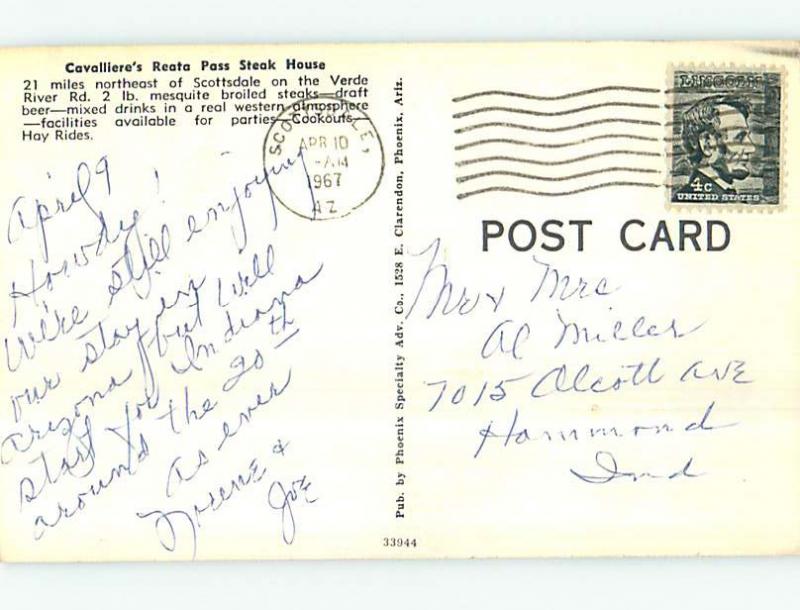 Cavalliere's Reata Pass Steak House
21 miles northeast of Scottsdale on the Verde
River Rd. 2 lb. mesquite broiled steaks—draft
beer—mixed drinks in a real western atmosphere
—facilities available for parties—Cookouts—
Hay Rides.
April 9
Howdy!
We're still enjoying
our stay in
Arizona but will
start for Indiana
around the 20th
as ever
&
Joe
Pub. by Phoenix Specialty Adv. Co., 1528 E. Clarendon, Phoenix, Ariz.
33944
SCOTTSDALE,
APR 10
-AM
1967
AZ
LINCOLN
4c
UNITED STATES
POST CARD
Mr & Mrs
Al Miller
7015 Alcott Ave
Hammond
Ind